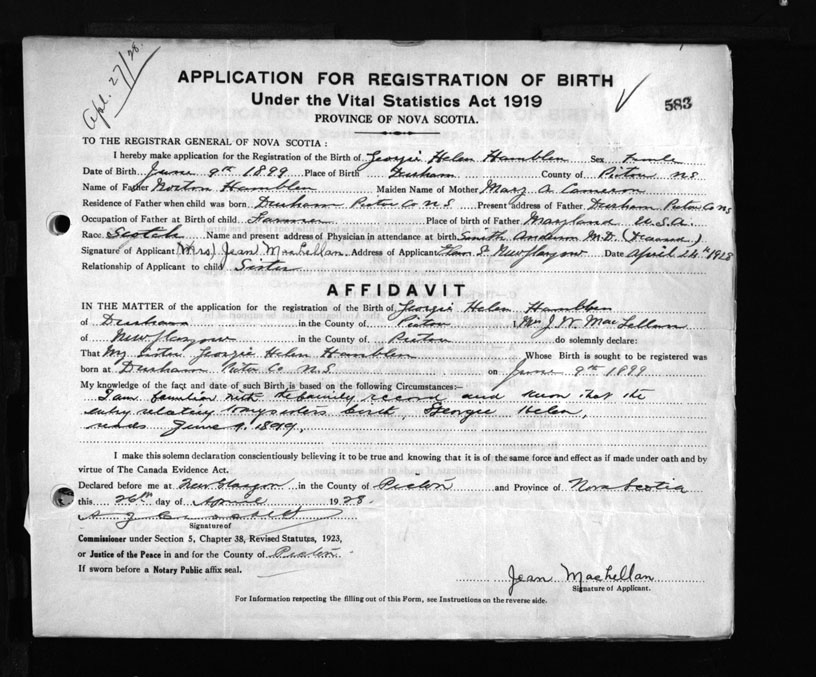 Apl. 27/28.
APPLICATION FOR REGISTRATION OF BIRTH
Under the Vital Statistics Act 1919
583
PROVINCE OF NOVA SCOTIA.
TO THE REGISTRAR GENERAL OF NOVA SCOTIA:
I hereby make application for the Registration of the Birth of Georgie Helen Hamblen Sex Female
Date of Birth June 9th 1899 Place of Birth Durham County of Pictou N S
Name of Father Norton Hamblen Maiden Name of Mother Mary A Cameron
Residence of Father when child was born Durham Pictou Co N S Present address of Father Durham Pictou Co NS
Occupation of Father at Birth of child Farmer Place of birth of Father Maryland U.S.A.
Race Scotch Name and present address of Physician in attendance at birth Smith Anderson M.D (Deceased)
Signature of Applicant (Mrs) Jean MacLellan Address of Applicant New Glasgow Date April 26th 1928
Relationship of Applicant to child Sister
AFFIDAVIT
IN THE MATTER of the application for the registration of the Birth of Georgie Helen Hamblen
of Durham in the County of Pictou I, Mrs J. W. MacLellan
of New Glasgow in the County of Pictou do solemnly declare:
That My sister Georgie Helen Hamblen Whose Birth is sought to be registered was
born at Durham Pictou Co N.S. on June 9th 1899.
My knowledge of the fact and date of such Birth is based on the following Circumstances:—
I am familiar with the family record and know that the
entry relating to my sisters birth, Georgie Helen,
reads June 9. 1899.
I make this solemn declaration conscientiously believing it to be true and knowing that it is of the same force and effect as if made under oath and by
virtue of The Canada Evidence Act.
Declared before me at New Glasgow in the County of Pictou and Province of Nova Scotia
this 26th day of April 1928.
Signature of
Commissioner under Section 5, Chapter 38, Revised Statutes, 1923,
or Justice of the Peace in and for the County of Pictou
If sworn before a Notary Public affix seal.
Jean MacLellan
Signature of Applicant.
For Information respecting the filling out of this Form, see Instructions on the reverse side.